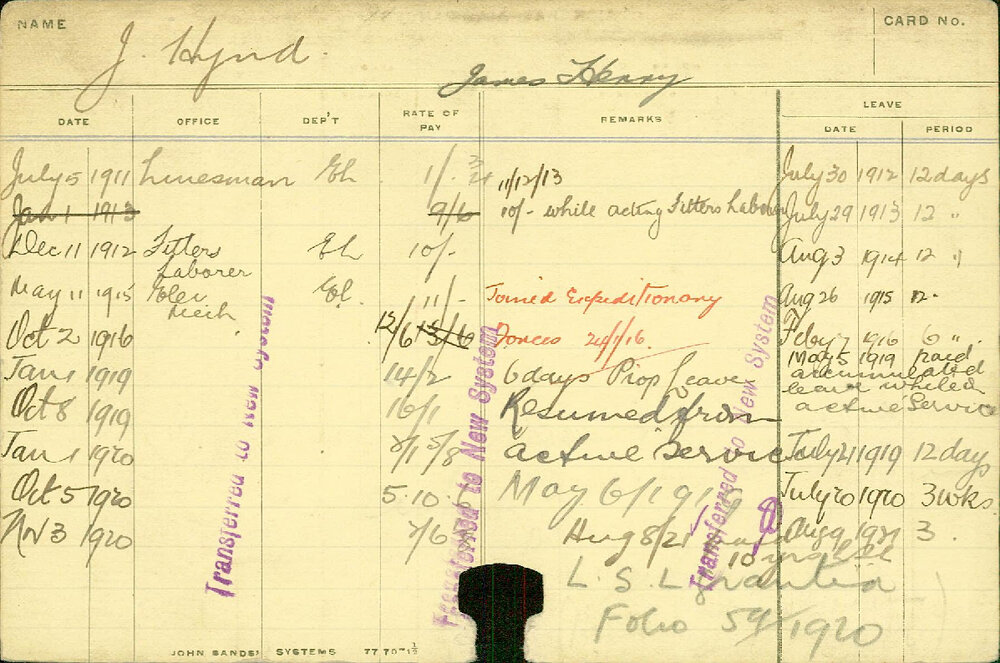 NAME
J. Hynd
James Henry
CARD No.
DATE OFFICE DEP'T RATE OF PAY REMARKS LEAVE
DATE PERIOD
July 5 1911 Linesman El. 1/- 11/12/13 July 30 1912 12 days
Jan 1 1913 9/6 10/- while acting Fitters Laborer July 29 1913 12 "
Dec 11 1912 Fitters Laborer El. 10/- Aug 3 1914 12 "
May 11 1915 Elec Mech El. 11/- Joined Expeditionary Aug 26 1915 12 "
Oct 2 1916 12/6 13/6 Forces 24/1/16. Feby 7 1916 6 "
Jan 1 1919 14/2 6 days Prop Leave May 5 1919 paid
accumulated
leave whiled
active Service
Oct 8 1919 16/1 Resumed from
Jan 1 1920 active Service July 21 1919 12 days
Oct 5 1920 5.10. May 6/19 July 20 1920 3 wks.
Nov 3 1920 7/6 Aug 8/21 Aug 9 1921 3.
L. S. L.
Folio 1920
Transferred to New System
Transferred to New System
Transferred to New System
JOHN SANDS' SYSTEMS